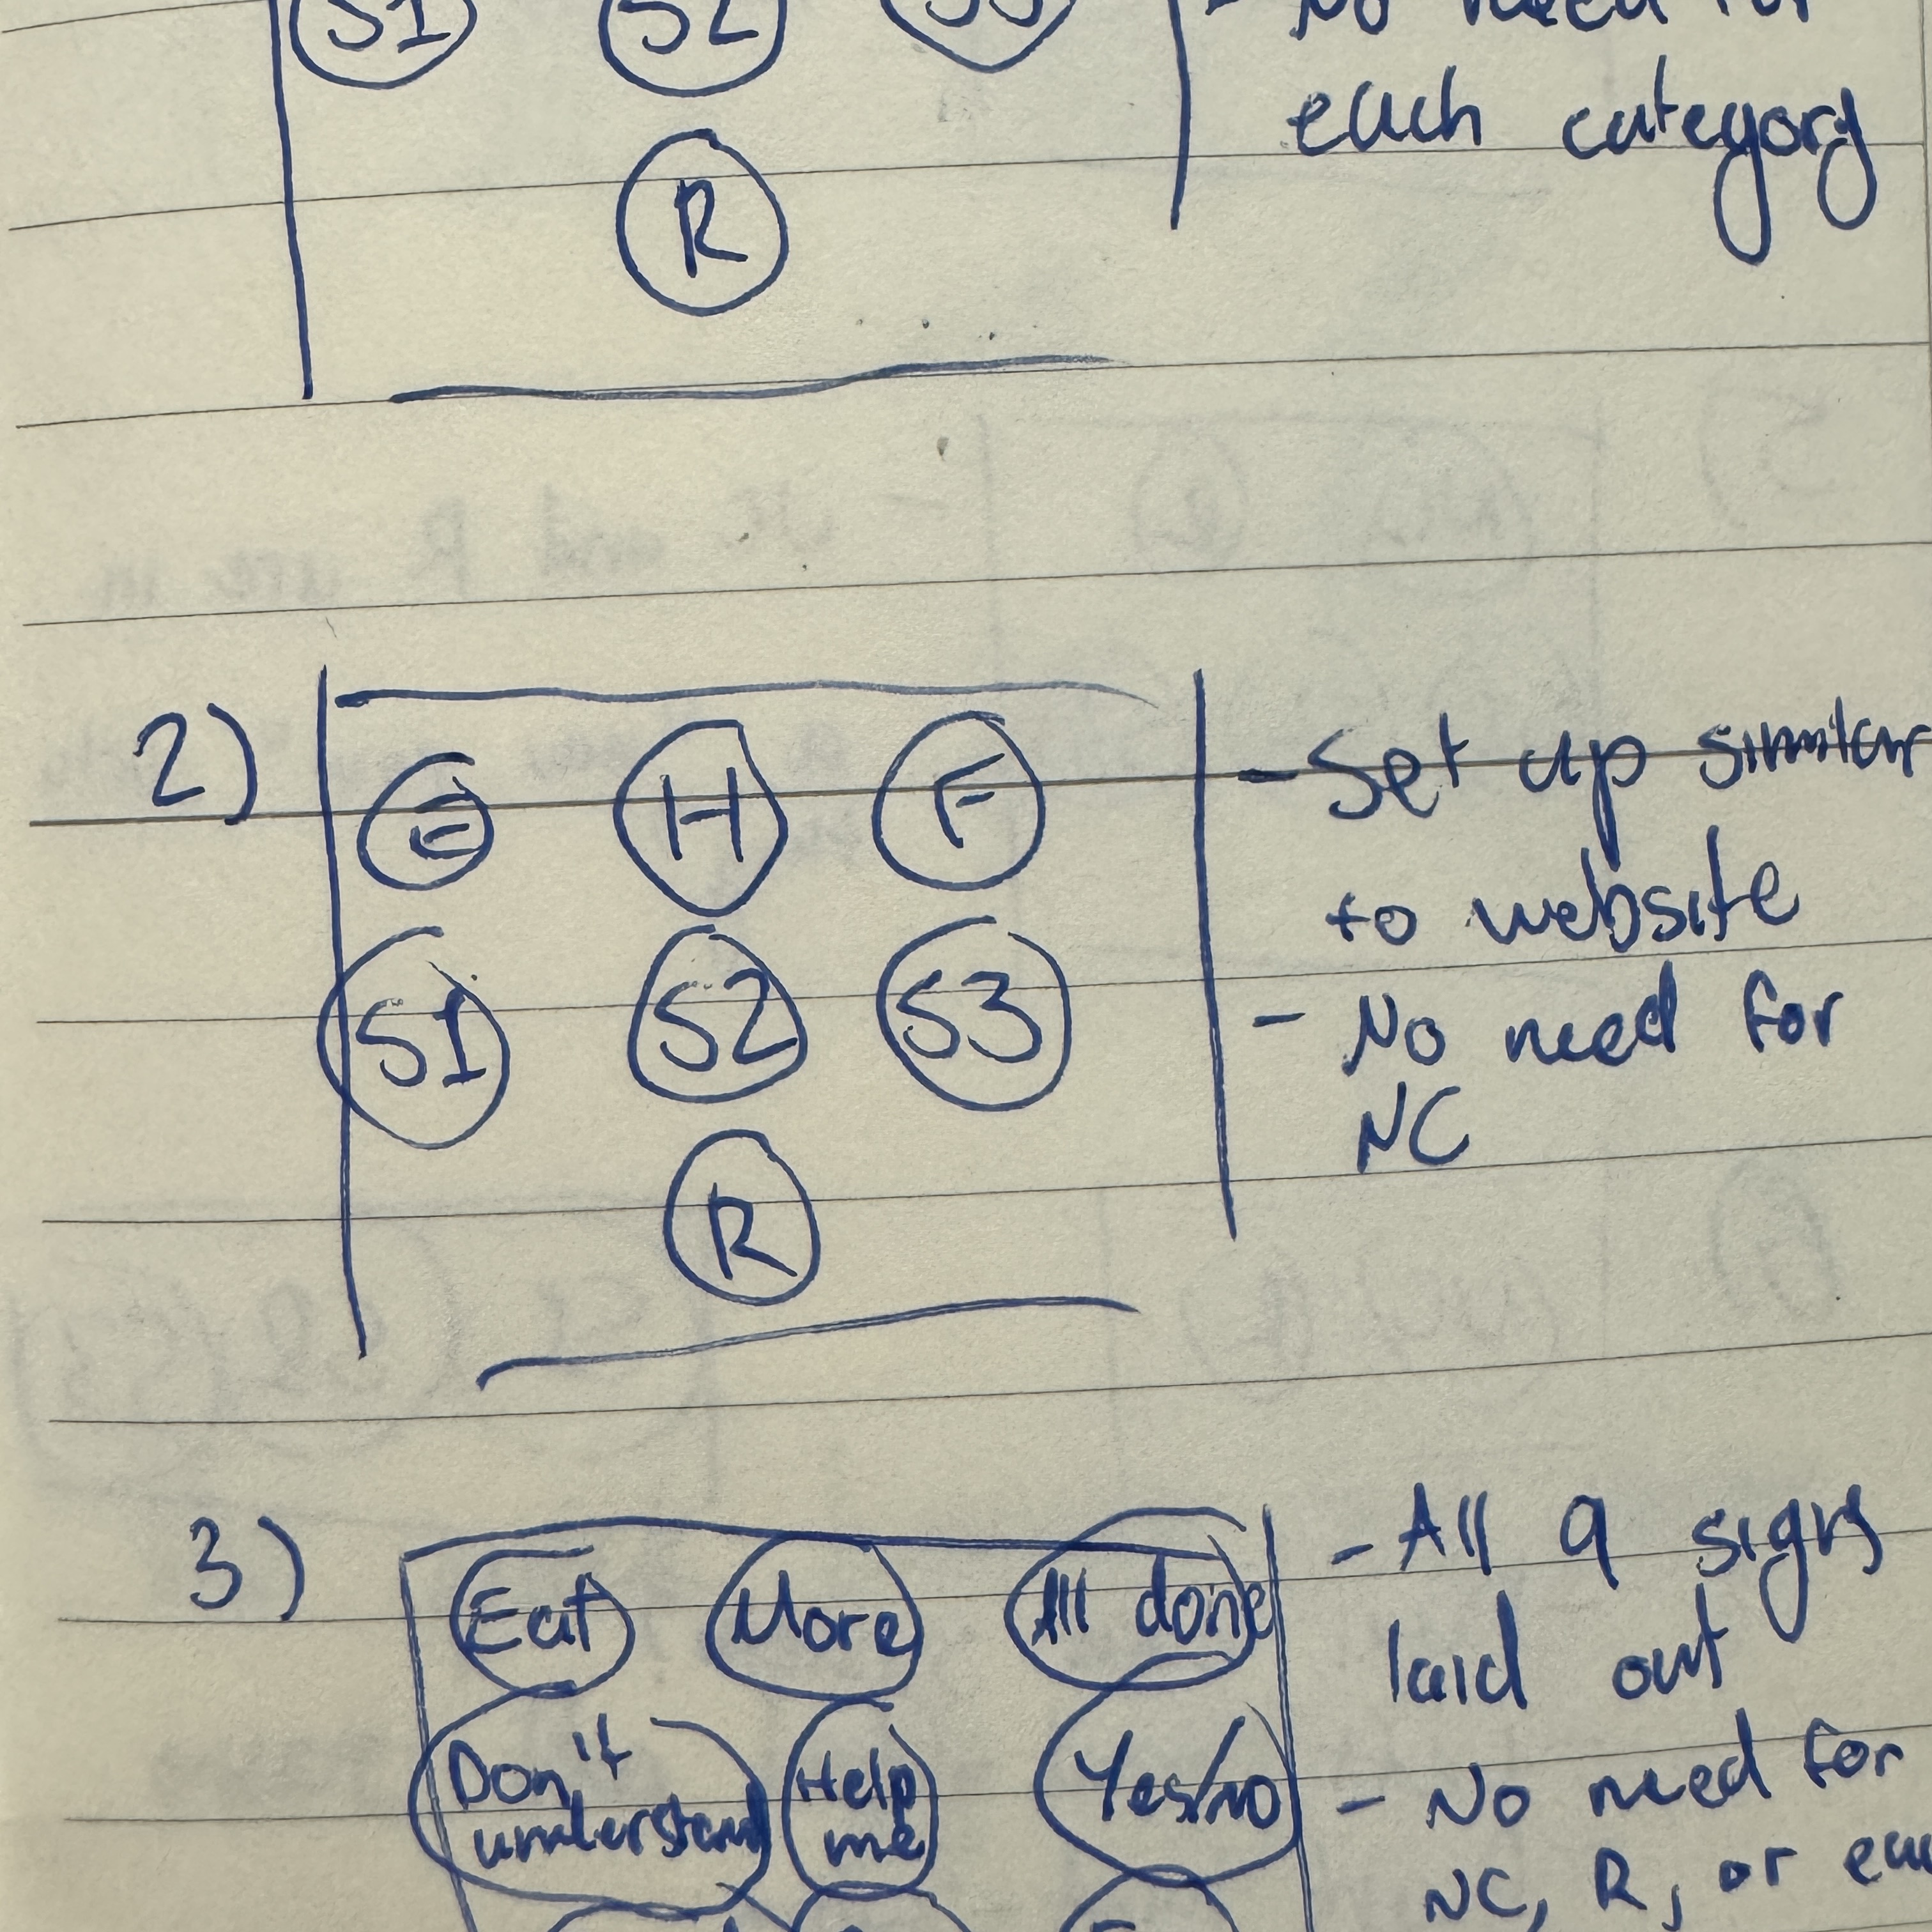 S1 S2 S3 - No need for
each category
R
2) E H F - Set up similar
to website
S1 S2 S3 - No need for
NC
R
3) Eat More All done - All 9 signs
laid out
Don't understand Help me Yes/No - No need for
NC, R, or